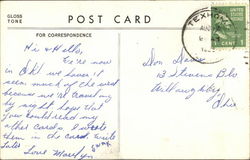 GLOSS
TONE
POST CARD
FOR CORRESPONDENCE
TEXHOMA
Hi & Hello,
We're now
in Okl. we haven't
seen much of the west
because we're traveling
by night. hope that
you could read my
other cards. I wrote
them in the car.
Love Marilyn
Don Davis
13 Stevens Blv
Willoughby,
Ohio
1